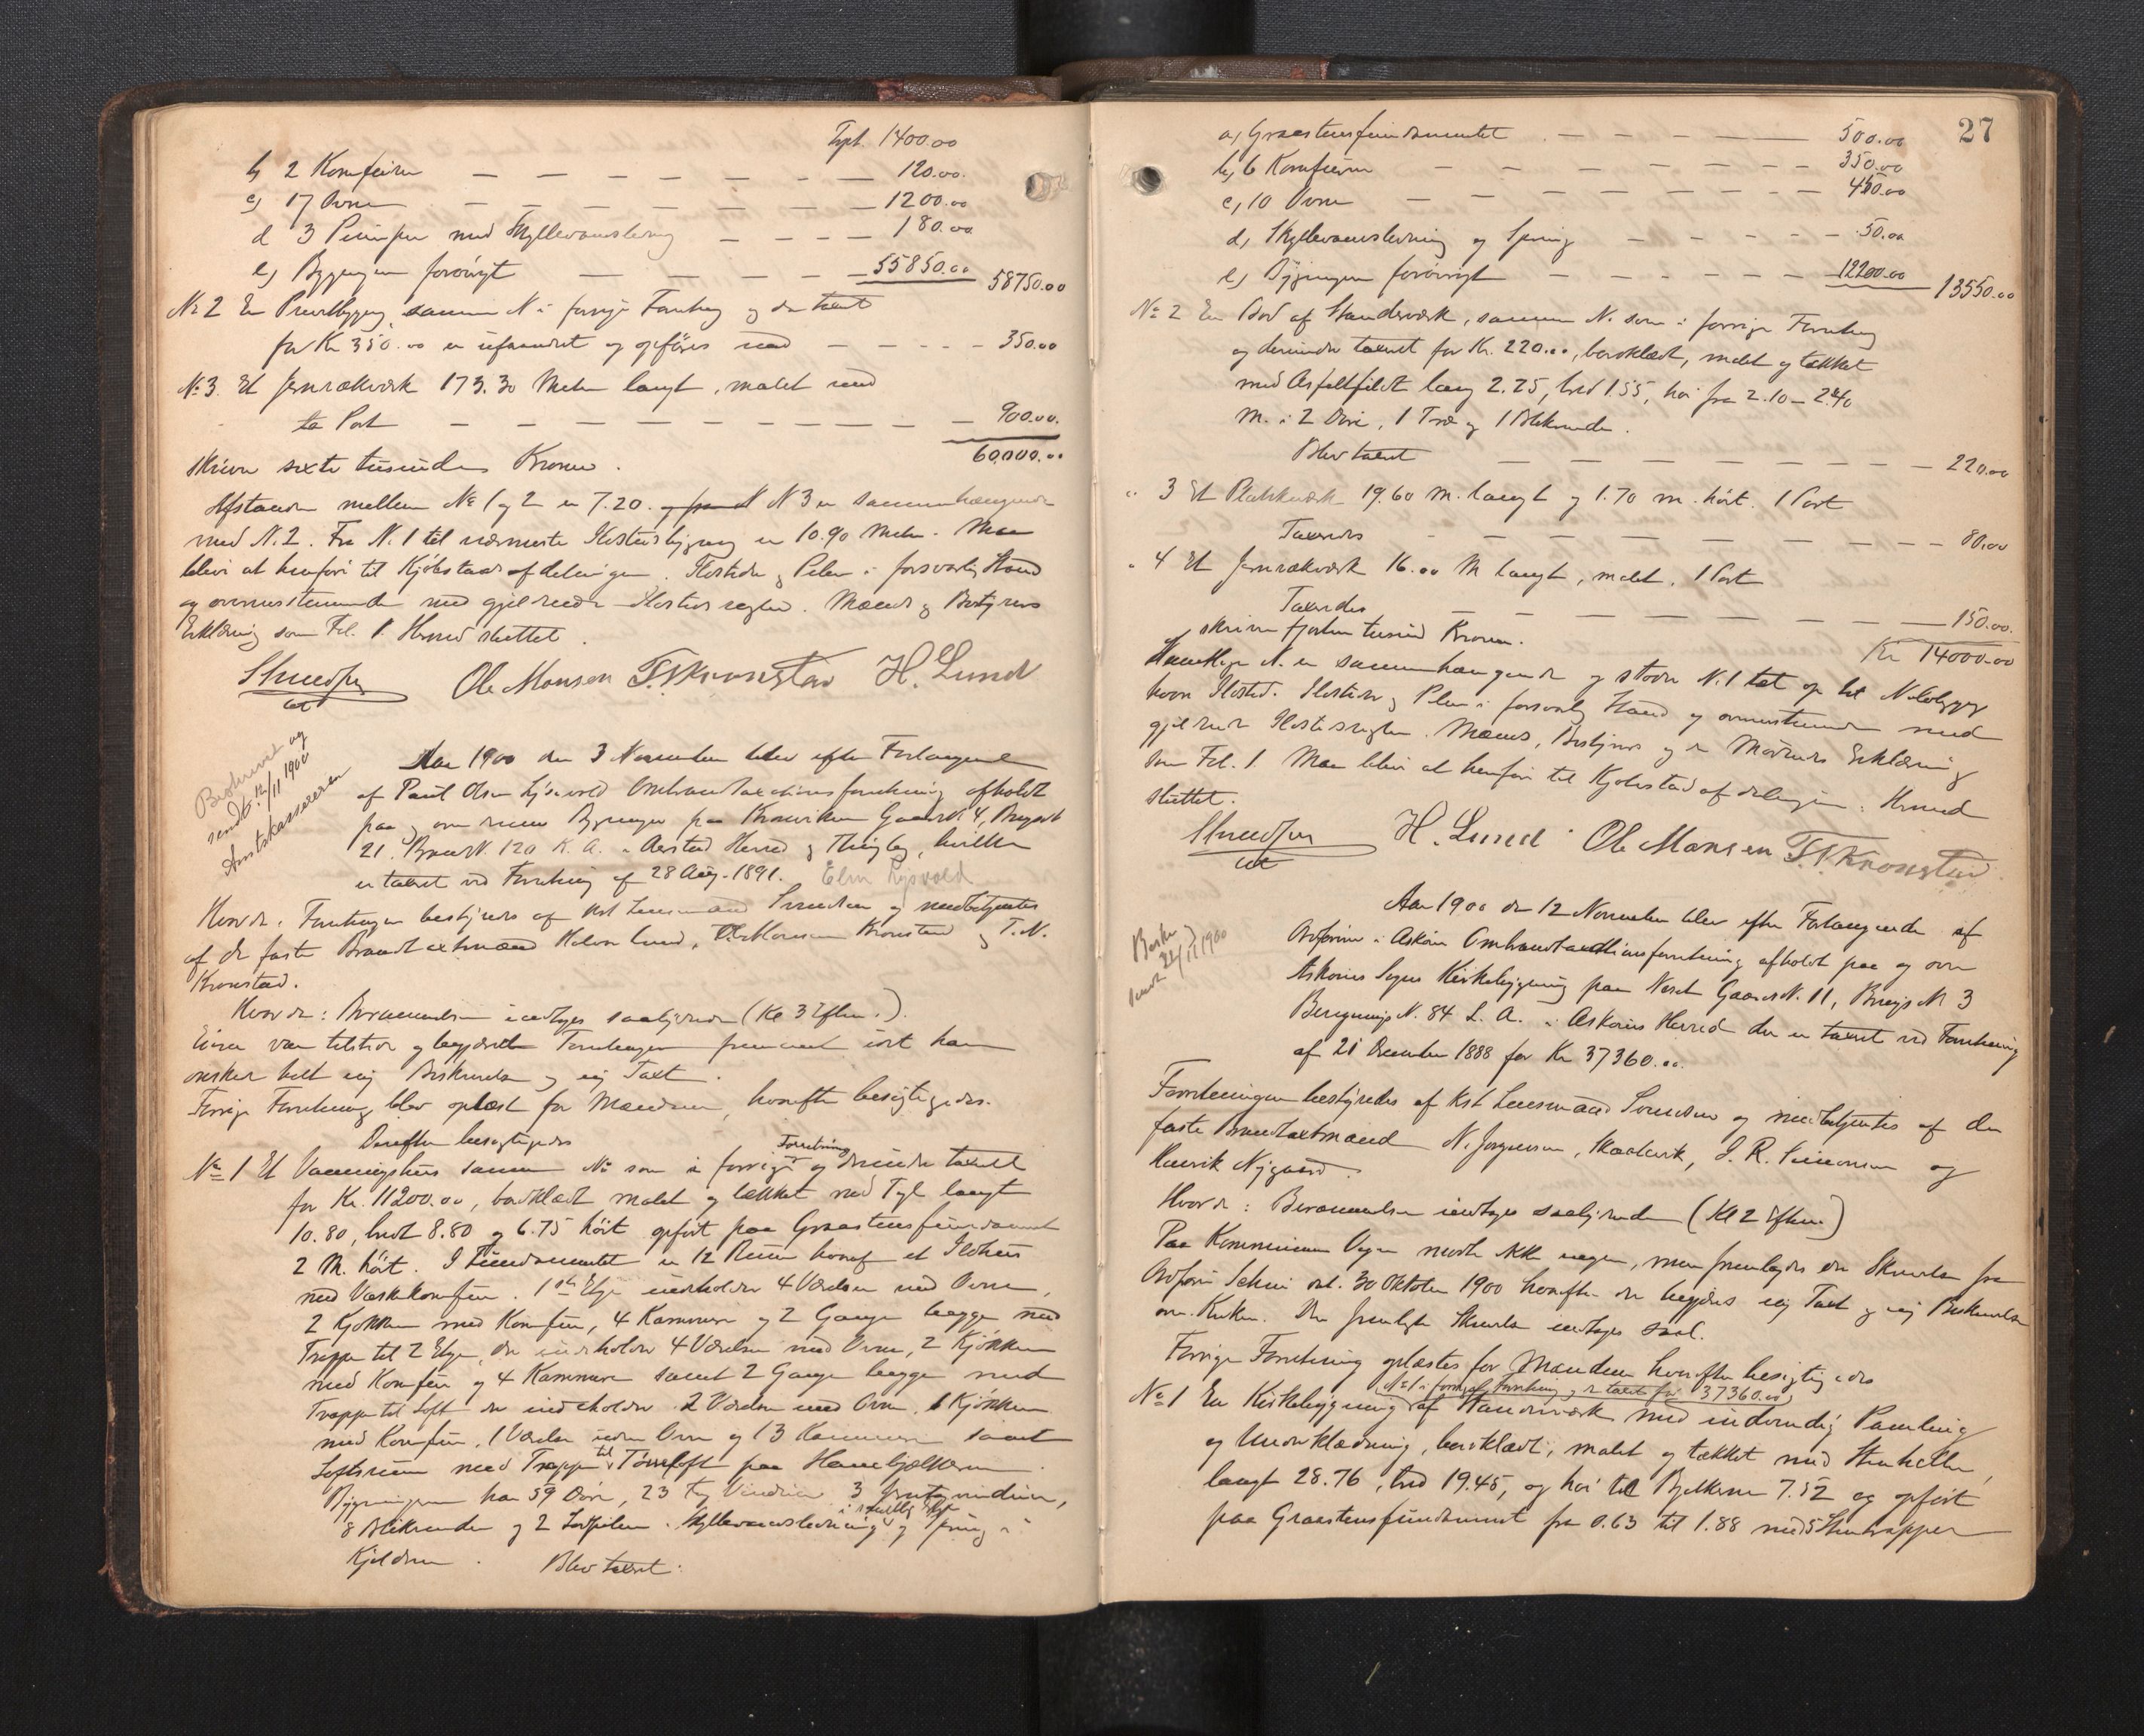 Tpt. 1400.00
b, 2 Komfurer — — — — — — — 120.00.
c, 17 Ovne — — — — — — — 1200.00
d 3 Pumper med Skyllevandsledning — — — — 180.00
e, Bygningen forøvrigt — — — — — 55850.00 58750.00
No 2 En Privetbygning, samme N i forrige Forretning og da taxt
for Kr 350.00 er uforandret og opføres med — — — — 350.00
No 3. Et Jernrækværk 173.30 Meter langt, malet med
to Port — — — — — — — — — — 900.00.
skriver sexti tusinde Kroner. 60,000.00
Afstanden mellem No 1 og 2 er 7.20. N 3 er sammenhængende
med N. 2. Fra N. 1 til nærmeste Ildstedsbygning er 10.90 Meter. Man
blev at henføre til Kjøbstadsafdelingen. Ildsteder og Piber i forsvarlig Stand
og overensstemmende med gjeldende Ildstedsregler. Mænds og Bestyrers
Erklæring som Fol. 1. Hermed sluttet.
Ole Monsen T. N. Kronstad H. Lund
cst
Beskrevet og
sendt 12/11 1900
Amtskassereren
Aar 1900 den 3 November blev efter Forlangende
af Paul Olsen Lysevold Ombrandtaxationsforretning afholdt
paa og over dennes Bygninger paa Kronviken Gaards N 4, Brugs N
21. Brand N. 120 K. A. i Aarstad Herred og Thinglag, hvilke
er taxeret ved Forretning af 28 Aug. 1891. Elen Lysvold
Hvorda: Forretningen bestyredes af Kst Lensmand Svendsen og medbetjentes
af de faste Brandtaxtmænd Halvor Lund, Ole Monsen Kronstad og T. N.
Kronstad.
Hvorda: Berammelsen indtoges saalydende (Kl 3 Eftm.).
Eieren var tilstede og begjærede Forretningen fremmet idet han
ønsker helt ny Beskrivelse og ny Taxt.
Forrige Forretning blev oplæst for Mændene, hvorefter besigtigedes.
Derefter besigtigedes
No 1 Et Vaaningshus samme No som i forrige Forretning og derunder taxeret
for Kr. 11200.00, bordklædt malet og tækket med Tegl langt
10.80, bredt 8.80 og 6.75 høit opført paa Graastensfundament
2 M. høit. I Fundamentet er 12 Rum hvoraf et Ildhus
med Vaskekomfur. 1ste Etge indeholder 4 Værelser med Ovne,
2 Kjøkken med Komfur, 4 Kammere og 2 Gange begge med
Trappe til 2 Etge, der indeholder 4 Værelser med Ovne, 2 Kjøkken
med Komfur og 4 Kammere samt 2 Gange begge med
Trappe til Loft der indeholder 2 Værelser med Ovn, 1 Kjøkken
med Komfur, 1 Værelse uden Ovn og 13 Kammere samt
Loftsrum med Trappe til Tørreloft paa Hanebjælkerne.
Bygningen har 59 Døre, 23 Fag Vinduer 3
8 Blikrender og 2 Skyllevandsledning i samtlige Etge og Spring i
Kjelderen. Blev taxeret:
27
a, Graastensfundamentet — — — — 500.00
b, 6 Komfurer — — — — — 350.00
c, 10 Ovne — — — — — — 450.00
d, Skyllevandsledning og Spring — — — — 50.00
e, Bygningen forøvrigt — — — — — 12200.00 13550.00
No 2 En Bod af Standerværk, samme No. som i forrige Forretning
og derunder taxeret for Kr. 220.00, bordklædt, malet og tækket
med Asfaltfildt lang 2.25, bred 1.55, høi fra 2.10 – 2.40
M. i 2 Døre, 1 Træ og 1 Blikrende.
Blev taxeret — — — — — — — 220.00
" 3 Et Plankværk 19.60 M. langt og 1.70 m. høit. 1 Port
Taxeredes — — — — — — — — 80.00
" 4 Et Jernrækværk 16.00 M langt, malet. 1 Port
Taxeredes — — — — — — — 150.00.
skriver fjorten tusind Kroner. Kr 14000.00
Samtlige N. er sammenhængende og støder N. 1 tæt op til Nabobygg
hvor Ildsted. Ildsteder og Piber i forsvarlig Stand og overensstemmende med
gjeldende Ildstedsregler. Mænds, Bestyrers og Erklæring
som Fol. 1. Man blev at henføre til Kjøbstadafdelingen. Hermed
sluttet.
H. Lund Ole Monsen T. N. Kronstad
cst
Beskr og
sendt 22/11 1900
Aar 1900 den 12 November blev efter Forlangende af
Ordføren i Askøen Ombrandtaxationsforretning afholdt paa og over
Askøens Sogns Kirkebygning paa Gaards N. 11, Brugs N 3
Bergnings N. 84 L. A. i Askøens Herred der er taxeret ved Forretning
af 21 December 1888 for Kr 37360.00.
Forretningen bestyredes af Kst Lensmand Svendsen og medbetjentes af de
faste Brandtaxtmænd N. Jørgensen, Skaalevik, J. R. Simonsen og
Henrik Nygaard.
Hvorda: Berammelsen indtoges saalydende (Kl 2 Eftm)
Paa Kommunens Vegne mødte ikke nogen, men fremlagdes en Skrivelse fra
Ordfører dat. 30 Oktober 1900 hvorefter der begjæres ny Taxt og ny Beskrivelse
over Kirken. Den fremlagte Skrivelse indtages saal.
Forrige Forretning oplæstes for Mændene hvorefter besigtigedes
(No 1 i forrige Forretning og er taxeret for 37360.00)
No 1 En Kirkebygning af Standerværk med indvendig Paneling
og Underklædning, bordklædt, malet og tækket med Stenheller,
langt 28.76, bred 19.45, og høi til Bjelkerne 7.52 og opført
paa Graastensfundament fra 0.63 til 1.88 med 5 Stentrapper